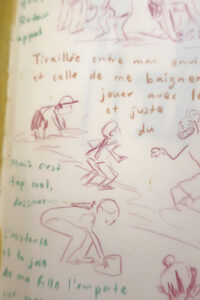 Retour
appel
Tiraillée entre mon envi
et celle de me baigner
jouer avec le
et juste
du
Mais c'est
trop cool,
dessiner...
L'insistance
et la joie
de ma fille l'emporte